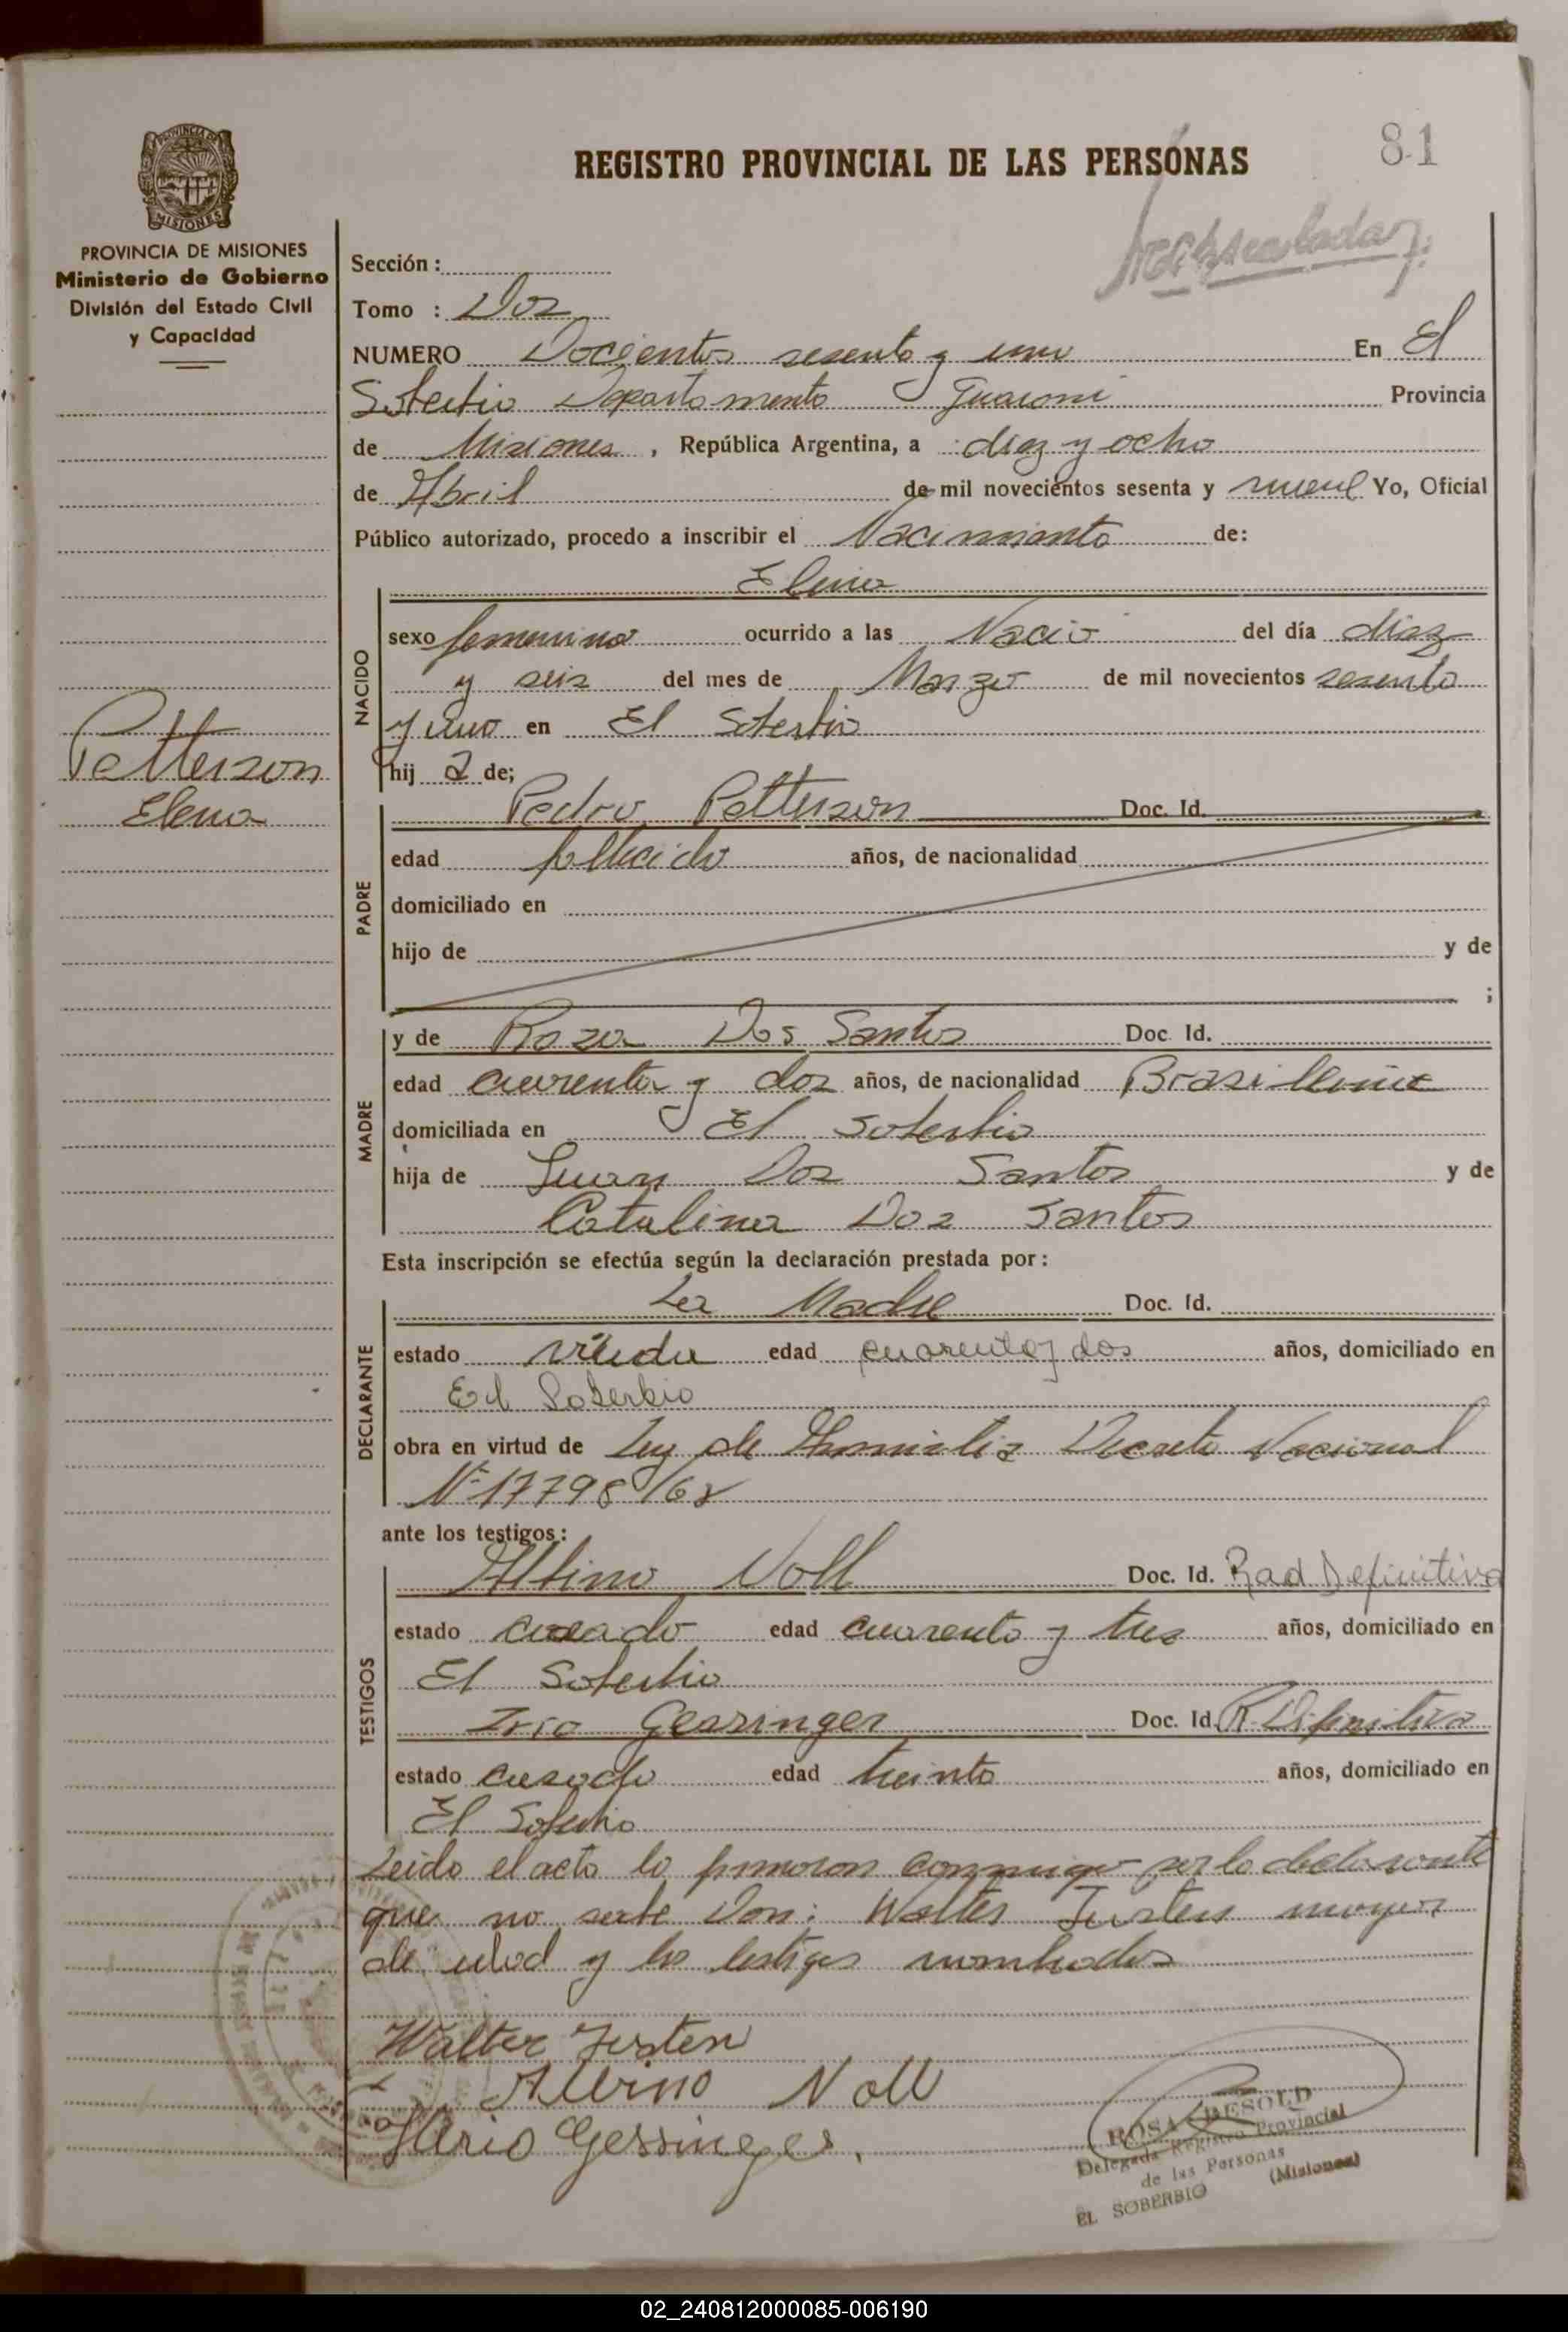 81
REGISTRO PROVINCIAL DE LAS PERSONAS
PROVINCIA DE
MISIONES
PROVINCIA DE MISIONES
Ministerio de Gobierno
División del Estado Civil
y Capacidad
Sección :
Tomo : Dos
NUMERO Docientos sesenta y uno En El
Soberbio Departamento Guarani Provincia
de Misiones , República Argentina, a diez y ocho
de Abril de mil novecientos sesenta y nueve Yo, Oficial
Público autorizado, procedo a inscribir el Nacimiento de:
Elena
NACIDO
sexo femenino ocurrido a las Nacio del día diez
y seis del mes de Marzo de mil novecientos sesenta
y uno en El Soberbio
hij a de;
Petterson
Elena
PADRE
Pedro Petterson Doc. Id.
edad fallecido años, de nacionalidad
domiciliado en
hijo de y de
;
MADRE
y de Roza Dos Santos Doc. Id.
edad cuarenta y dos años, de nacionalidad Brasileña
domiciliada en El Soberbio
hija de Juan Dos Santos y de
Catalina Dos Santos
Esta inscripción se efectúa según la declaración prestada por :
DECLARANTE
La Madre Doc. Id.
estado viuda edad cuarenta y dos años, domiciliado en
El Soberbio
obra en virtud de Ley de Amnistia Decreto Nacional
Nº 17798/68
ante los testigos :
TESTIGOS
Albino Noll Doc. Id. Rad Definitiva
estado casado edad cuarenta y tres años, domiciliado en
El Soberbio
Gessinger Doc. Id. R Difinitiva
estado casado edad treinta años, domiciliado en
El Soberbio
Leido el acta la firmaron conmigo por la declarante
que no sabe Don: Walter Justen mayor
de edad y los testigos nombrados
Walter Justen
Albino Noll
Gessinger
ROSA BESOLD
Delegada Registro Provincial
de las Personas
EL SOBERBIO (Misiones)
02_240812000085-006190